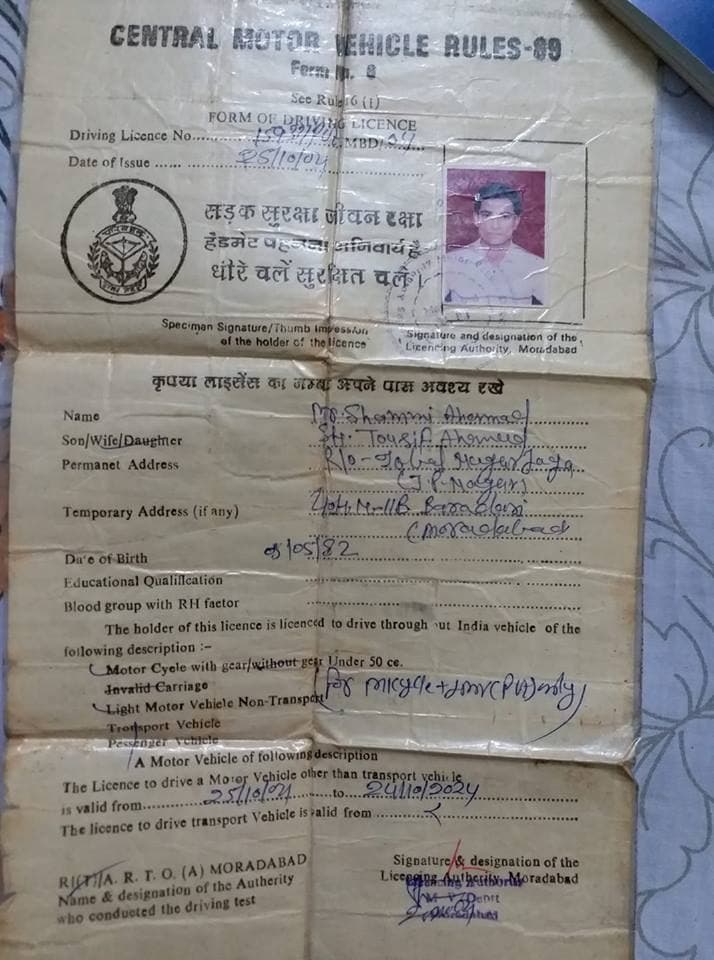 CENTRAL MOTOR VEHICLE RULES-89
Form No. 6
See Rule 16 (1)
FORM OF DRIVING LICENCE
Driving Licence No. MBD/04
Date of Issue ...... 25/10/04
सड़क सुरक्षा जीवन रक्षा
हेलमेट पहनना अनिवार्य है
धीरे चलें सुरक्षित चलें।
Specimen Signature/Thumb Impession
of the holder of the licence
Signature and designation of the
Licencing Authority, Moradabad
कृपया लाइसेंस का अपने पास अवश्य रखे
Name Mr. Shammi Ahemad
Son/Wife/Daugher Sri. Tousif Ahemad
Permanet Address R/o- Nagar Joya
(J.P. Nagar)
Temporary Address (if any) Baradari
(Moradabad
Date of Birth /05/82
Educational Qualification
Blood group with RH factor
The holder of this licence is licenced to drive through out India vehicle of the
following description :-
Motor Cycle with gear/without gear Under 50 ce.
Invalid Carriage
Light Motor Vehicle Non-Transport (for M/cycle + LMV (Pvt) only)
Transport Vehicle
Passenger Vehicle
A Motor Vehicle of following description
The Licence to drive a Motor Vehicle other than transport vehicle
is valid from 25/10/04 to 24/10/2024
The licence to drive transport Vehicle is valid from
R(T)/A. R. T. O. (A) MORADABAD
Name & designation of the Authority
who conducted the driving test
Signature & designation of the
Licencing Authority, Moradabad